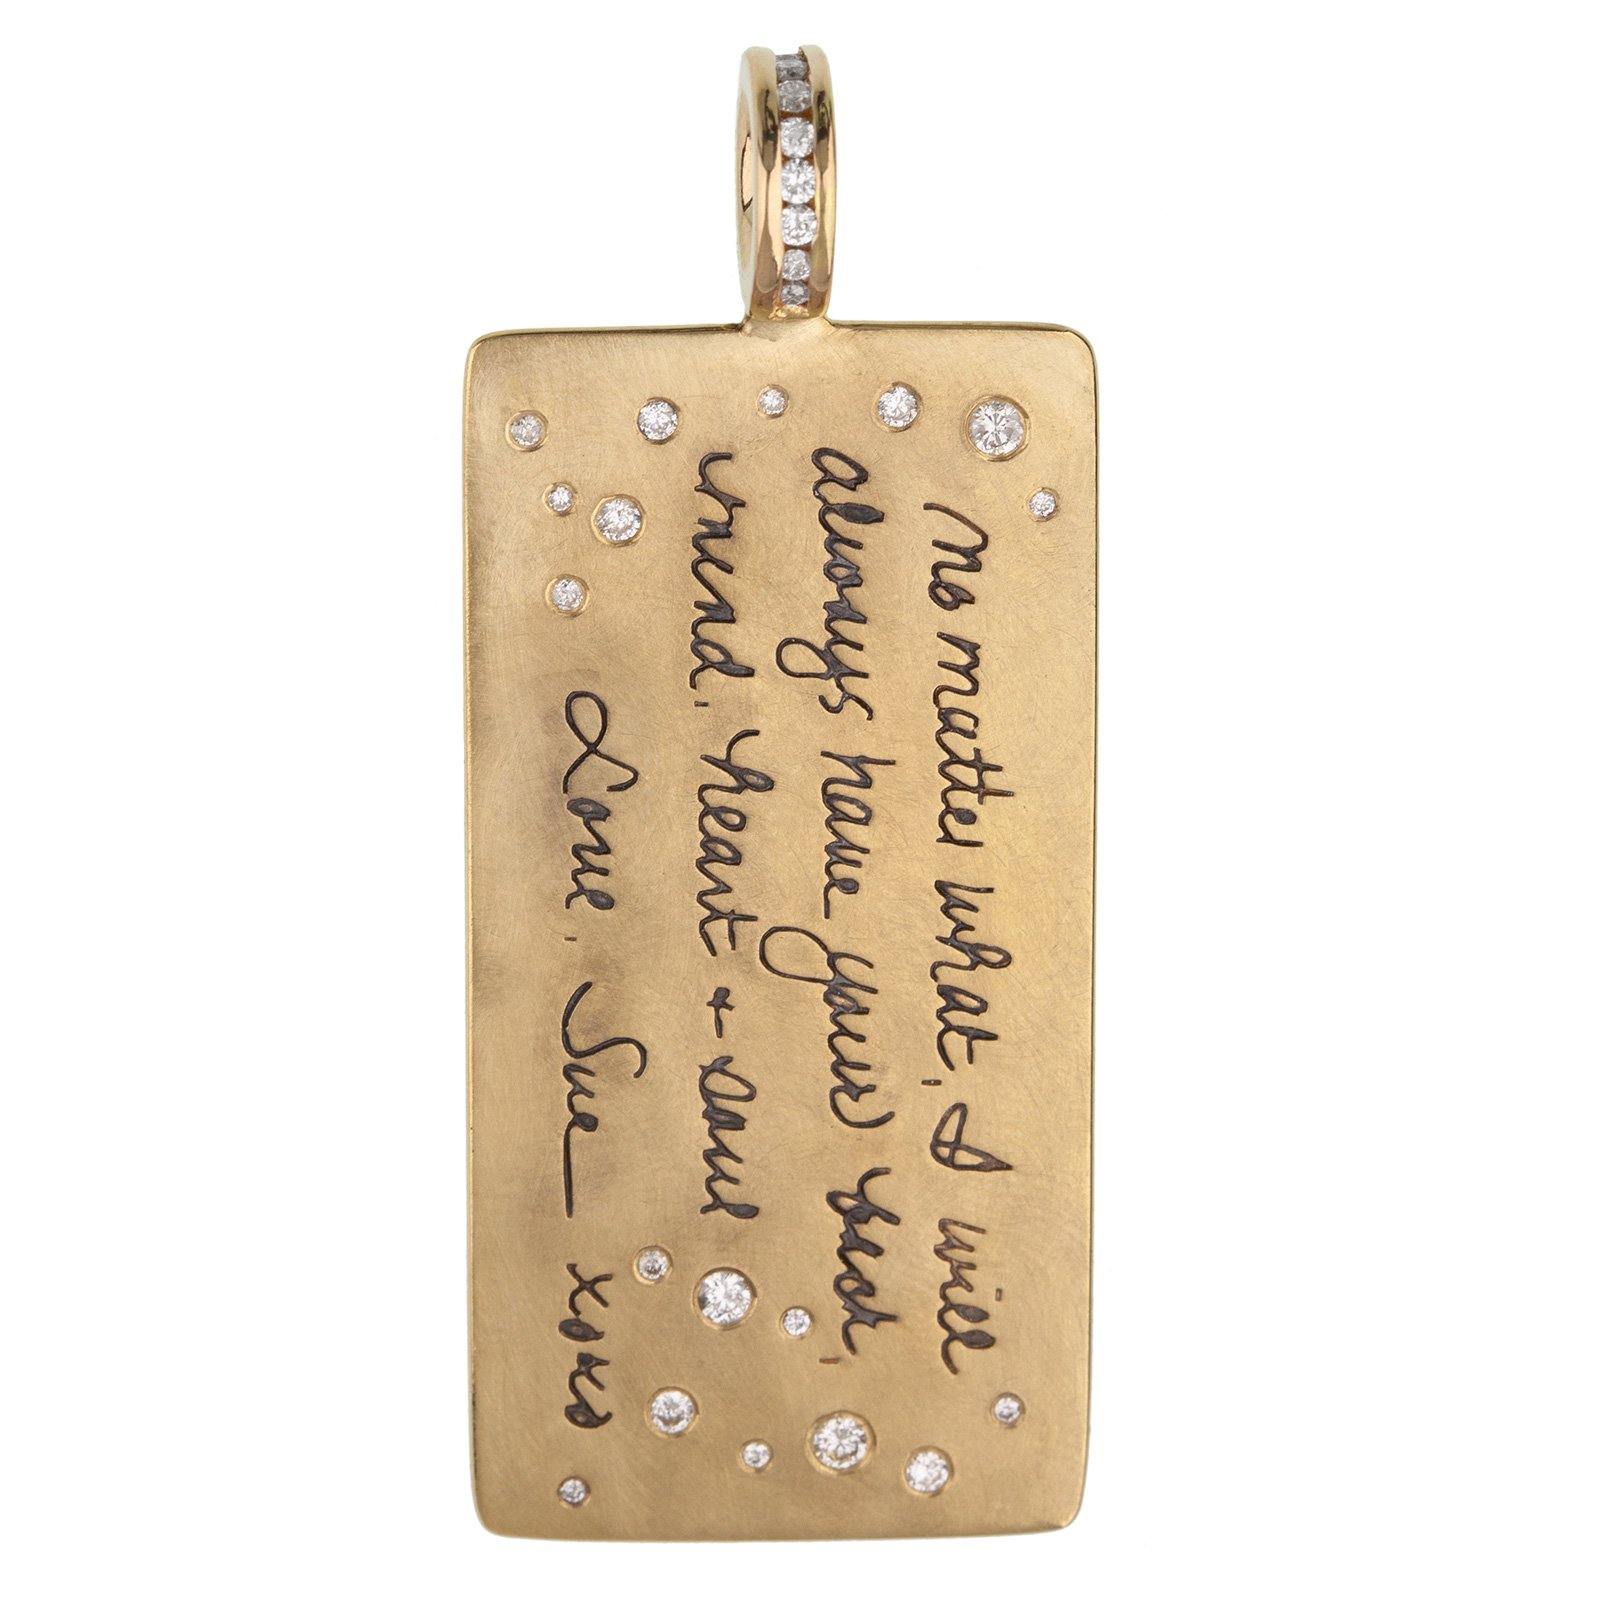 No matter what, I will
always have your back,
mind, heart + soul
Love, Sue xoxo